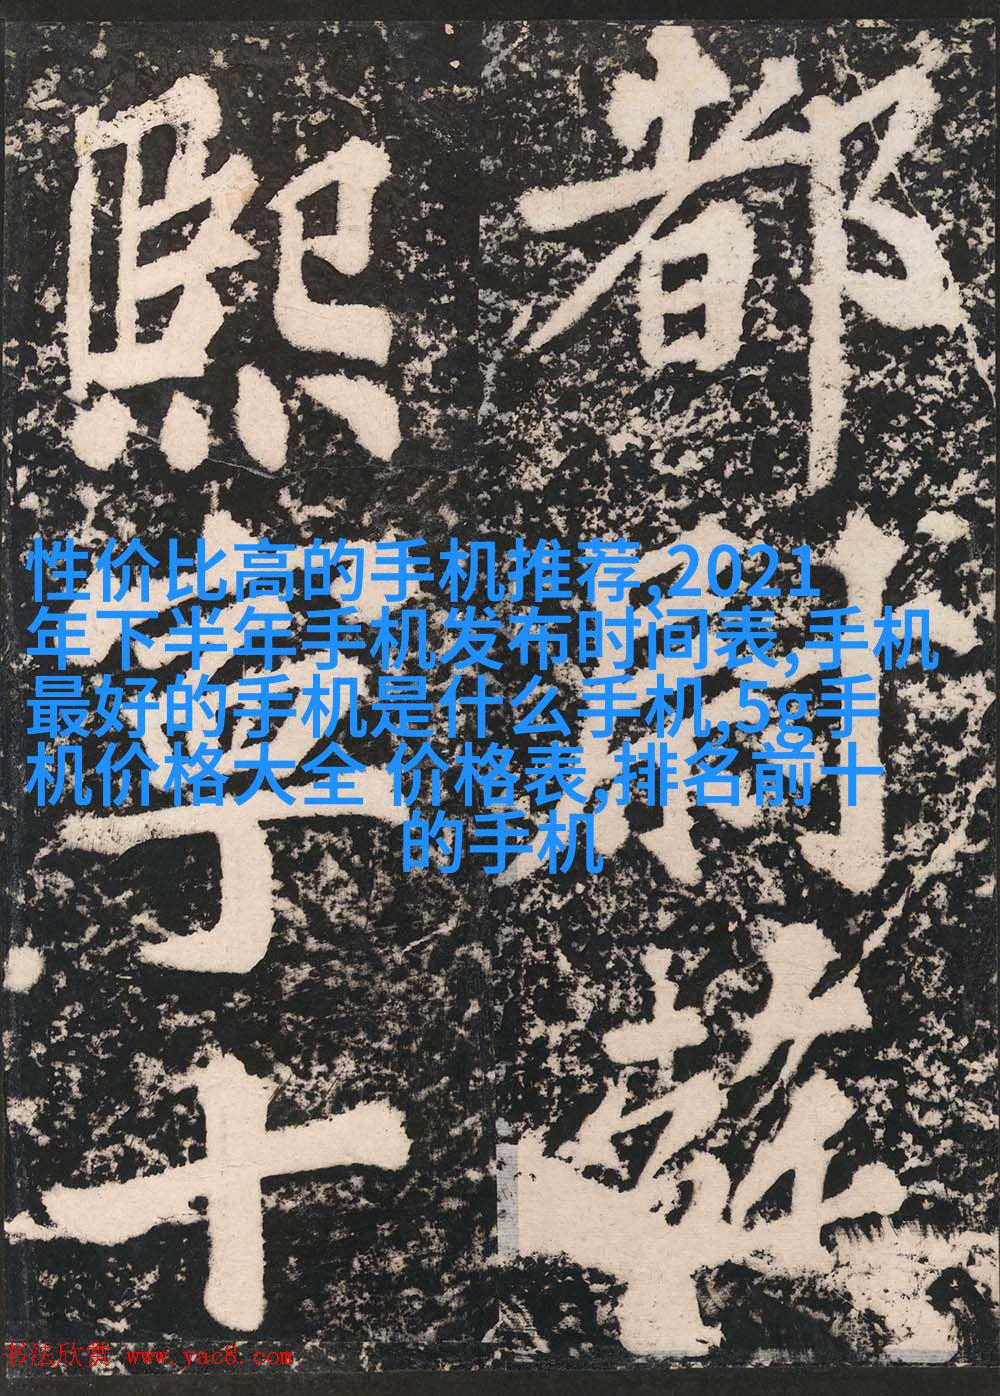 都尉蘇
熙寧十
性价比高的手机推荐,2021
年下半年手机发布时间表,手机
最好的手机是什么手机,5g手
机价格大全 价格表,排名前十
的手机
书法欣赏 www.yac8.com